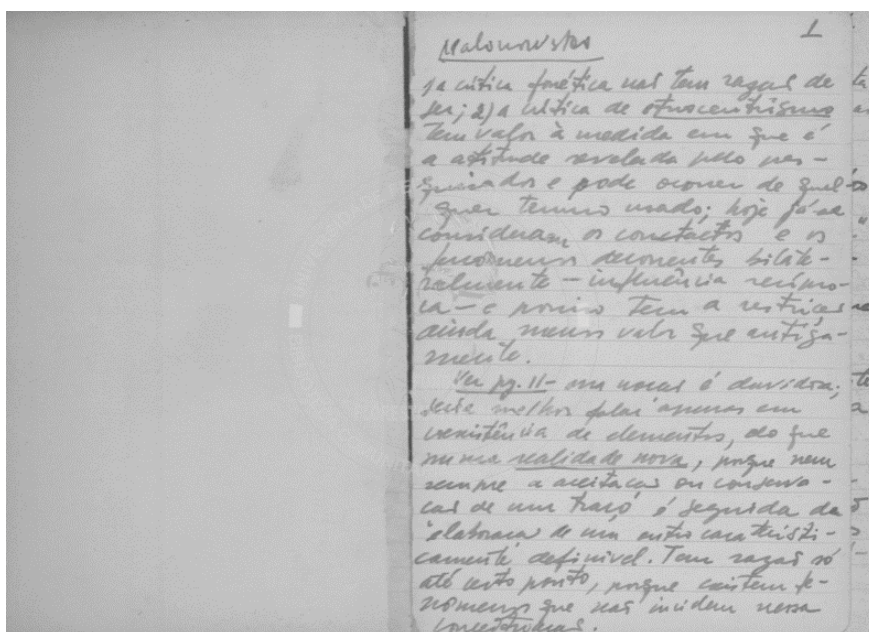 1
Malonowsko
1a crítica fonética nas tem razas de
ser; 2) a crítica de etnocentrismo
tem valor à medida em que é
a atitude revelada pelo pes-
quisador e pode ocorrer de qual-
quer termo usado; hoje já se
consideram os conctactos e os
fenomenos decorrentes bilate-
ralmente — influência recipro-
ca — e porisso tem a restriças
ainda menos valor que antiga-
mente.
Ver pg. 11 — é duvidosa;
seria melhor falar apenas em
coexistência de elementos, do que
numa realidade nova, porque nem
sempre a aceitacas ou conserva-
cas de um traço é seguida da
"elaboracas de um outro caracteristi-
camente definivel. Tem razas só
até certo ponto, porque existem fe-
nomenos que nas incidem nessa